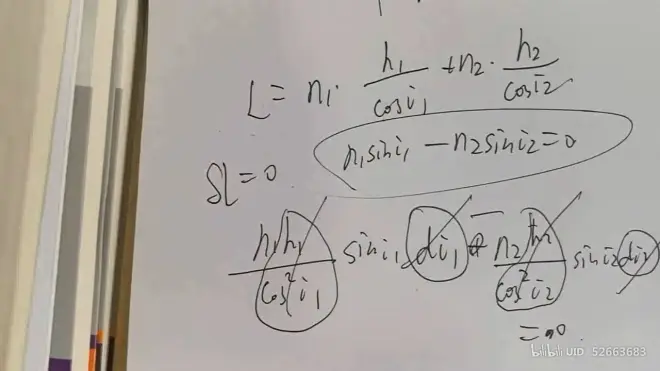 L = n₁· h₁/cosi₁ + n₂· h₂/cosi₂
n₁sini₁ − n₂sini₂ = 0
δL = 0
n₁h₁/cos²i₁ sini₁ di₁ − n₂h₂/cos²i₂ sini₂ di₂
= 0
bilibili UID 52663683